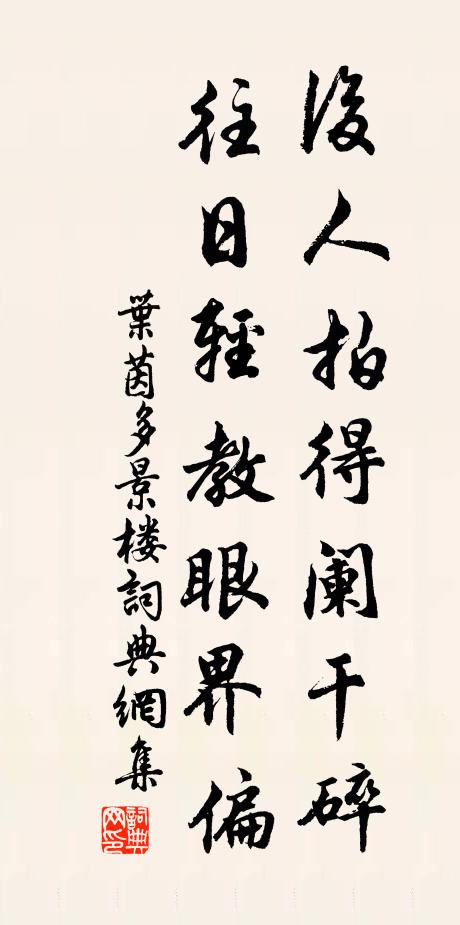 後人拍得阑干碎
往日輕教眼界偏
葉茵多景楼詞典網集
詞典网印